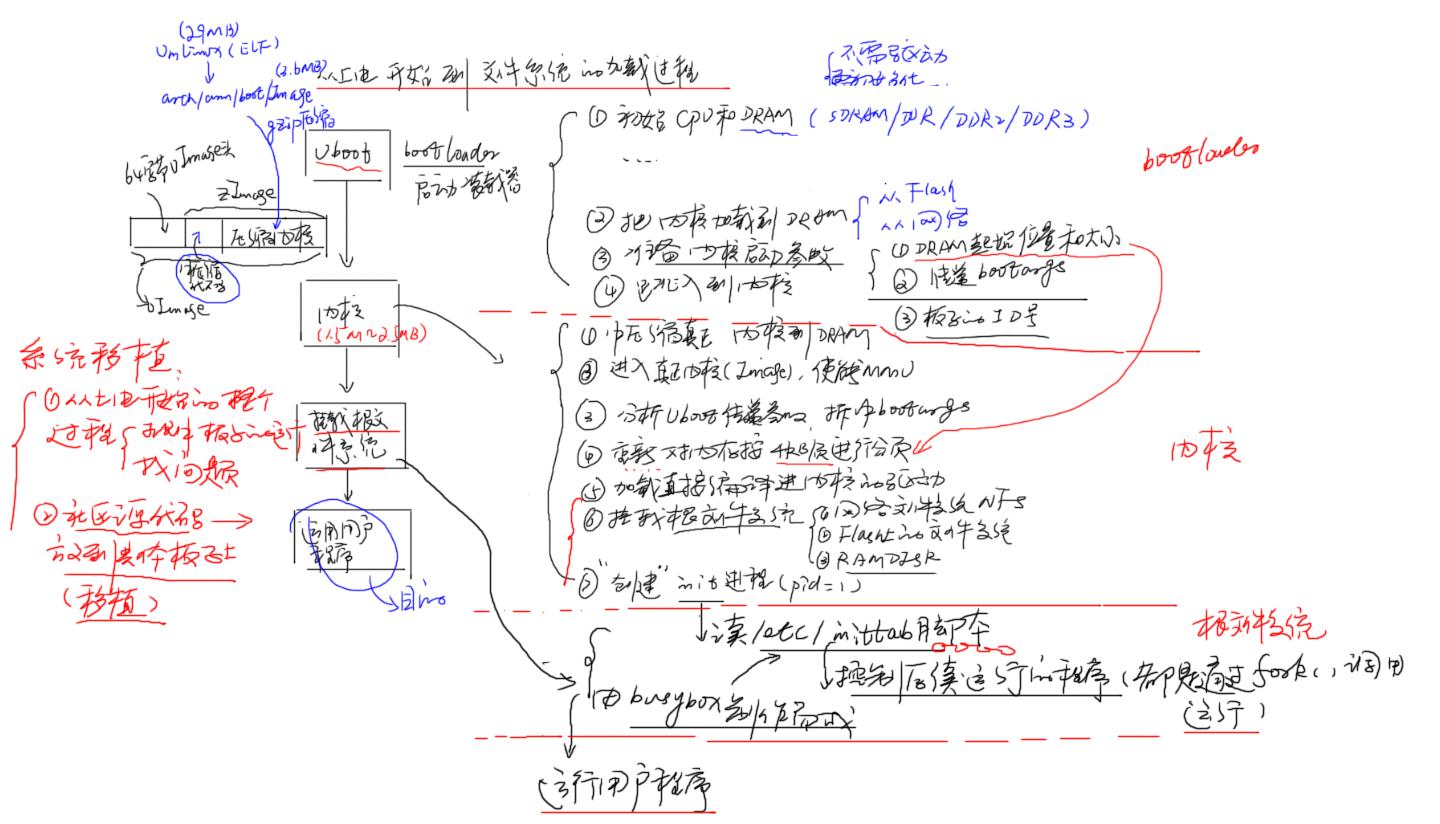 从上电开始到文件系统的加载过程
(29MB)
Vmlinux (ELF)
(3.6MB)
arch/arm/boot/Image
gzip压缩
64字节UImage头
zImage
压缩内核
UImage
Uboot
bootloader
启动装载器
内核
(1.5M~2.5MB)
挂载根文
件系统
运用用户
程序
目的
系统移植:
①从上电开始的整个
过程
找问题
②社区源代码
放到具体板子上
(移植)
不需驱动
①初始CPU和DRAM (SDRAM/DDR/DDR2/DDR3)
....
bootloader
②把内核加载到DRAM
从Flash
从网络
③准备内核启动参数
①DRAM起始位置和大小
②传递bootargs
③板子的ID号
④跳入到内核
①解压缩真正内核到DRAM
②进入真正内核(Image),使能MMU
③分析Uboot传递参数,拆解bootargs
④重新对内存按4KB/页进行分页
⑤加载直接编译进内核的驱动
⑥挂载根文件系统
①网络文件系统NFS
②Flash上的文件系统
③RAMDISK
⑦"创建"init进程(pid=1)
内核
读/etc/inittab脚本
控制后续运行的程序(都是通过fork()调用
运行)
由busybox制作而成
根文件系统
运行用户程序